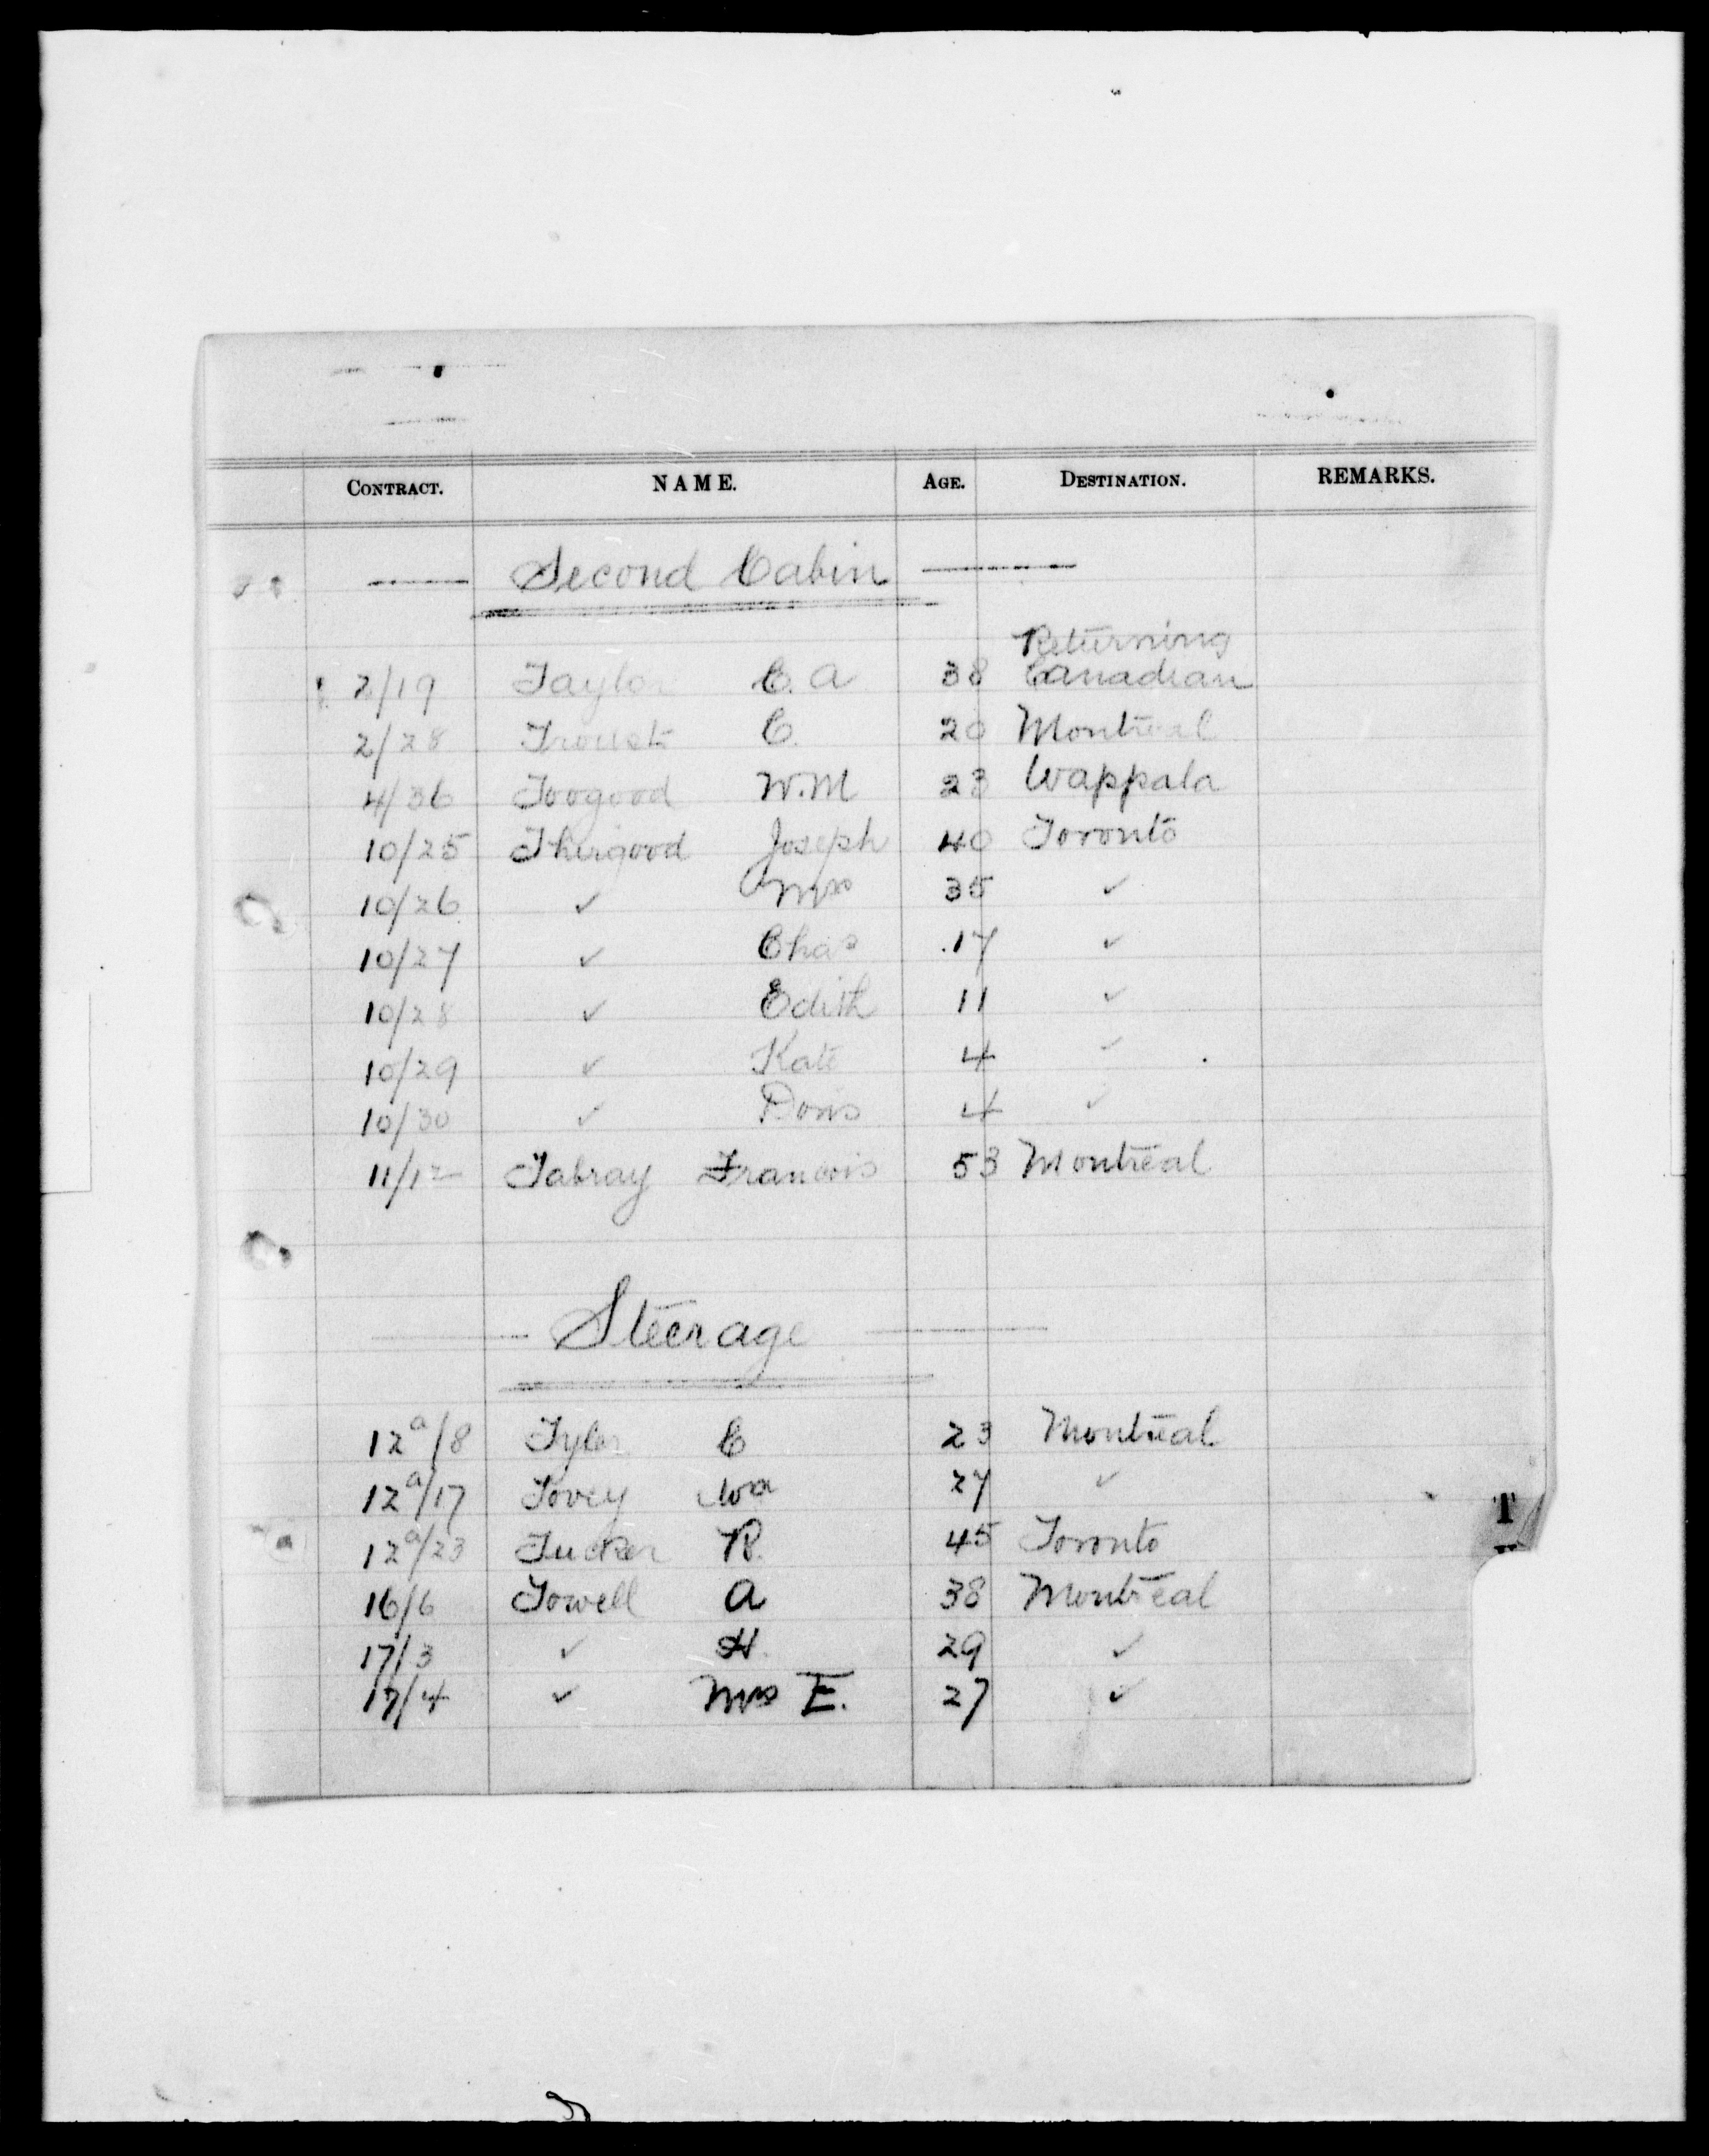 CONTRACT. NAME. AGE. DESTINATION. REMARKS.
Second Cabin
Returning
2/19 Taylor C. A 38 Canadian
2/28 C. 20 Montreal
4/36 Toogood W.M 23 Wappala
10/25 Thurgood Joseph 40 Toronto
10/26 ✓ Mrs 35 ✓
10/27 ✓ Chas 17 ✓
10/28 ✓ Edith 11 ✓
10/29 ✓ Kate 4 ✓
10/30 ✓ Doris 4 ✓
11/12 Tabray Francois 53 Montreal
Steerage
12a/8 Tyler C 23 Montreal
12a/17 Tovey 27 ✓
12a/23 Tucker R. 45 Toronto
16/6 Towell A 38 Montreal
17/3 ✓ H. 29 ✓
17/4 ✓ Mrs E. 27 ✓
T